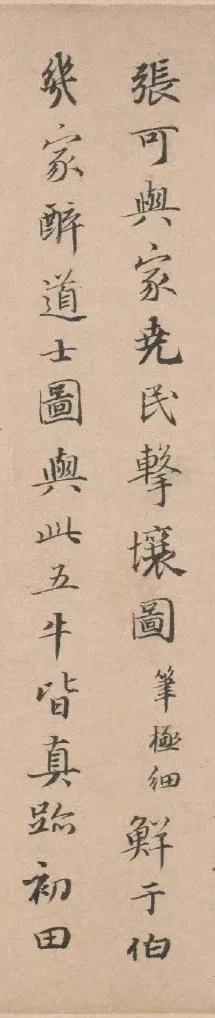 張可與家堯民擊壤圖筆極細鮮于伯
幾家醉道士圖與此五牛皆真跡初田